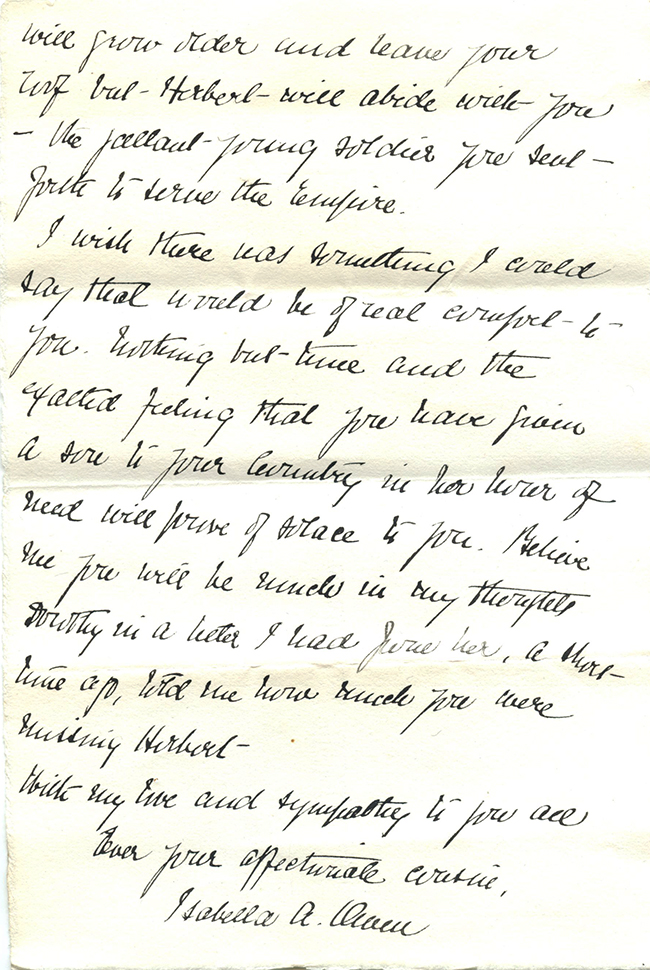 will grow older and leave your
roof but - Herbert - will abide with you
- the gallant young soldier you sent -
forth to serve the Empire.
I wish there was something I could
say that would be of real comfort - to
you. Nothing but - time and the
exalted feeling that you have given
a son to your Country in her hour of
need will prove of solace to you. Believe
me you will be much in my thoughts
Dorothy in a letter I had from her, a short
time ago, told me how much you were
missing Herbert -
With my love and sympathy to you all
Ever your affectionate cousin,
Isabella A. Owen